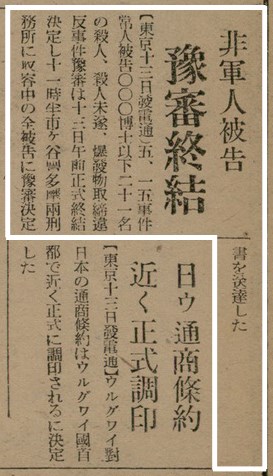 非軍人被告
豫審終結
【東京十三日發電通】五、一五事件
常人被告〇〇〇博士以下二十一名
の殺人、殺人未遂、爆發物取締違
反事件豫審は十三日午前正式終結
決定し十一時半市ケ谷豐多摩兩刑
務所に收容中の全被告に豫審決定
書を送達した
日ウ通商條約
近く正式調印
【東京十三日發電通】ウルグワイ對
日本の通商條約はウルグワイ國首
都で近く正式に調印されるに決定
した